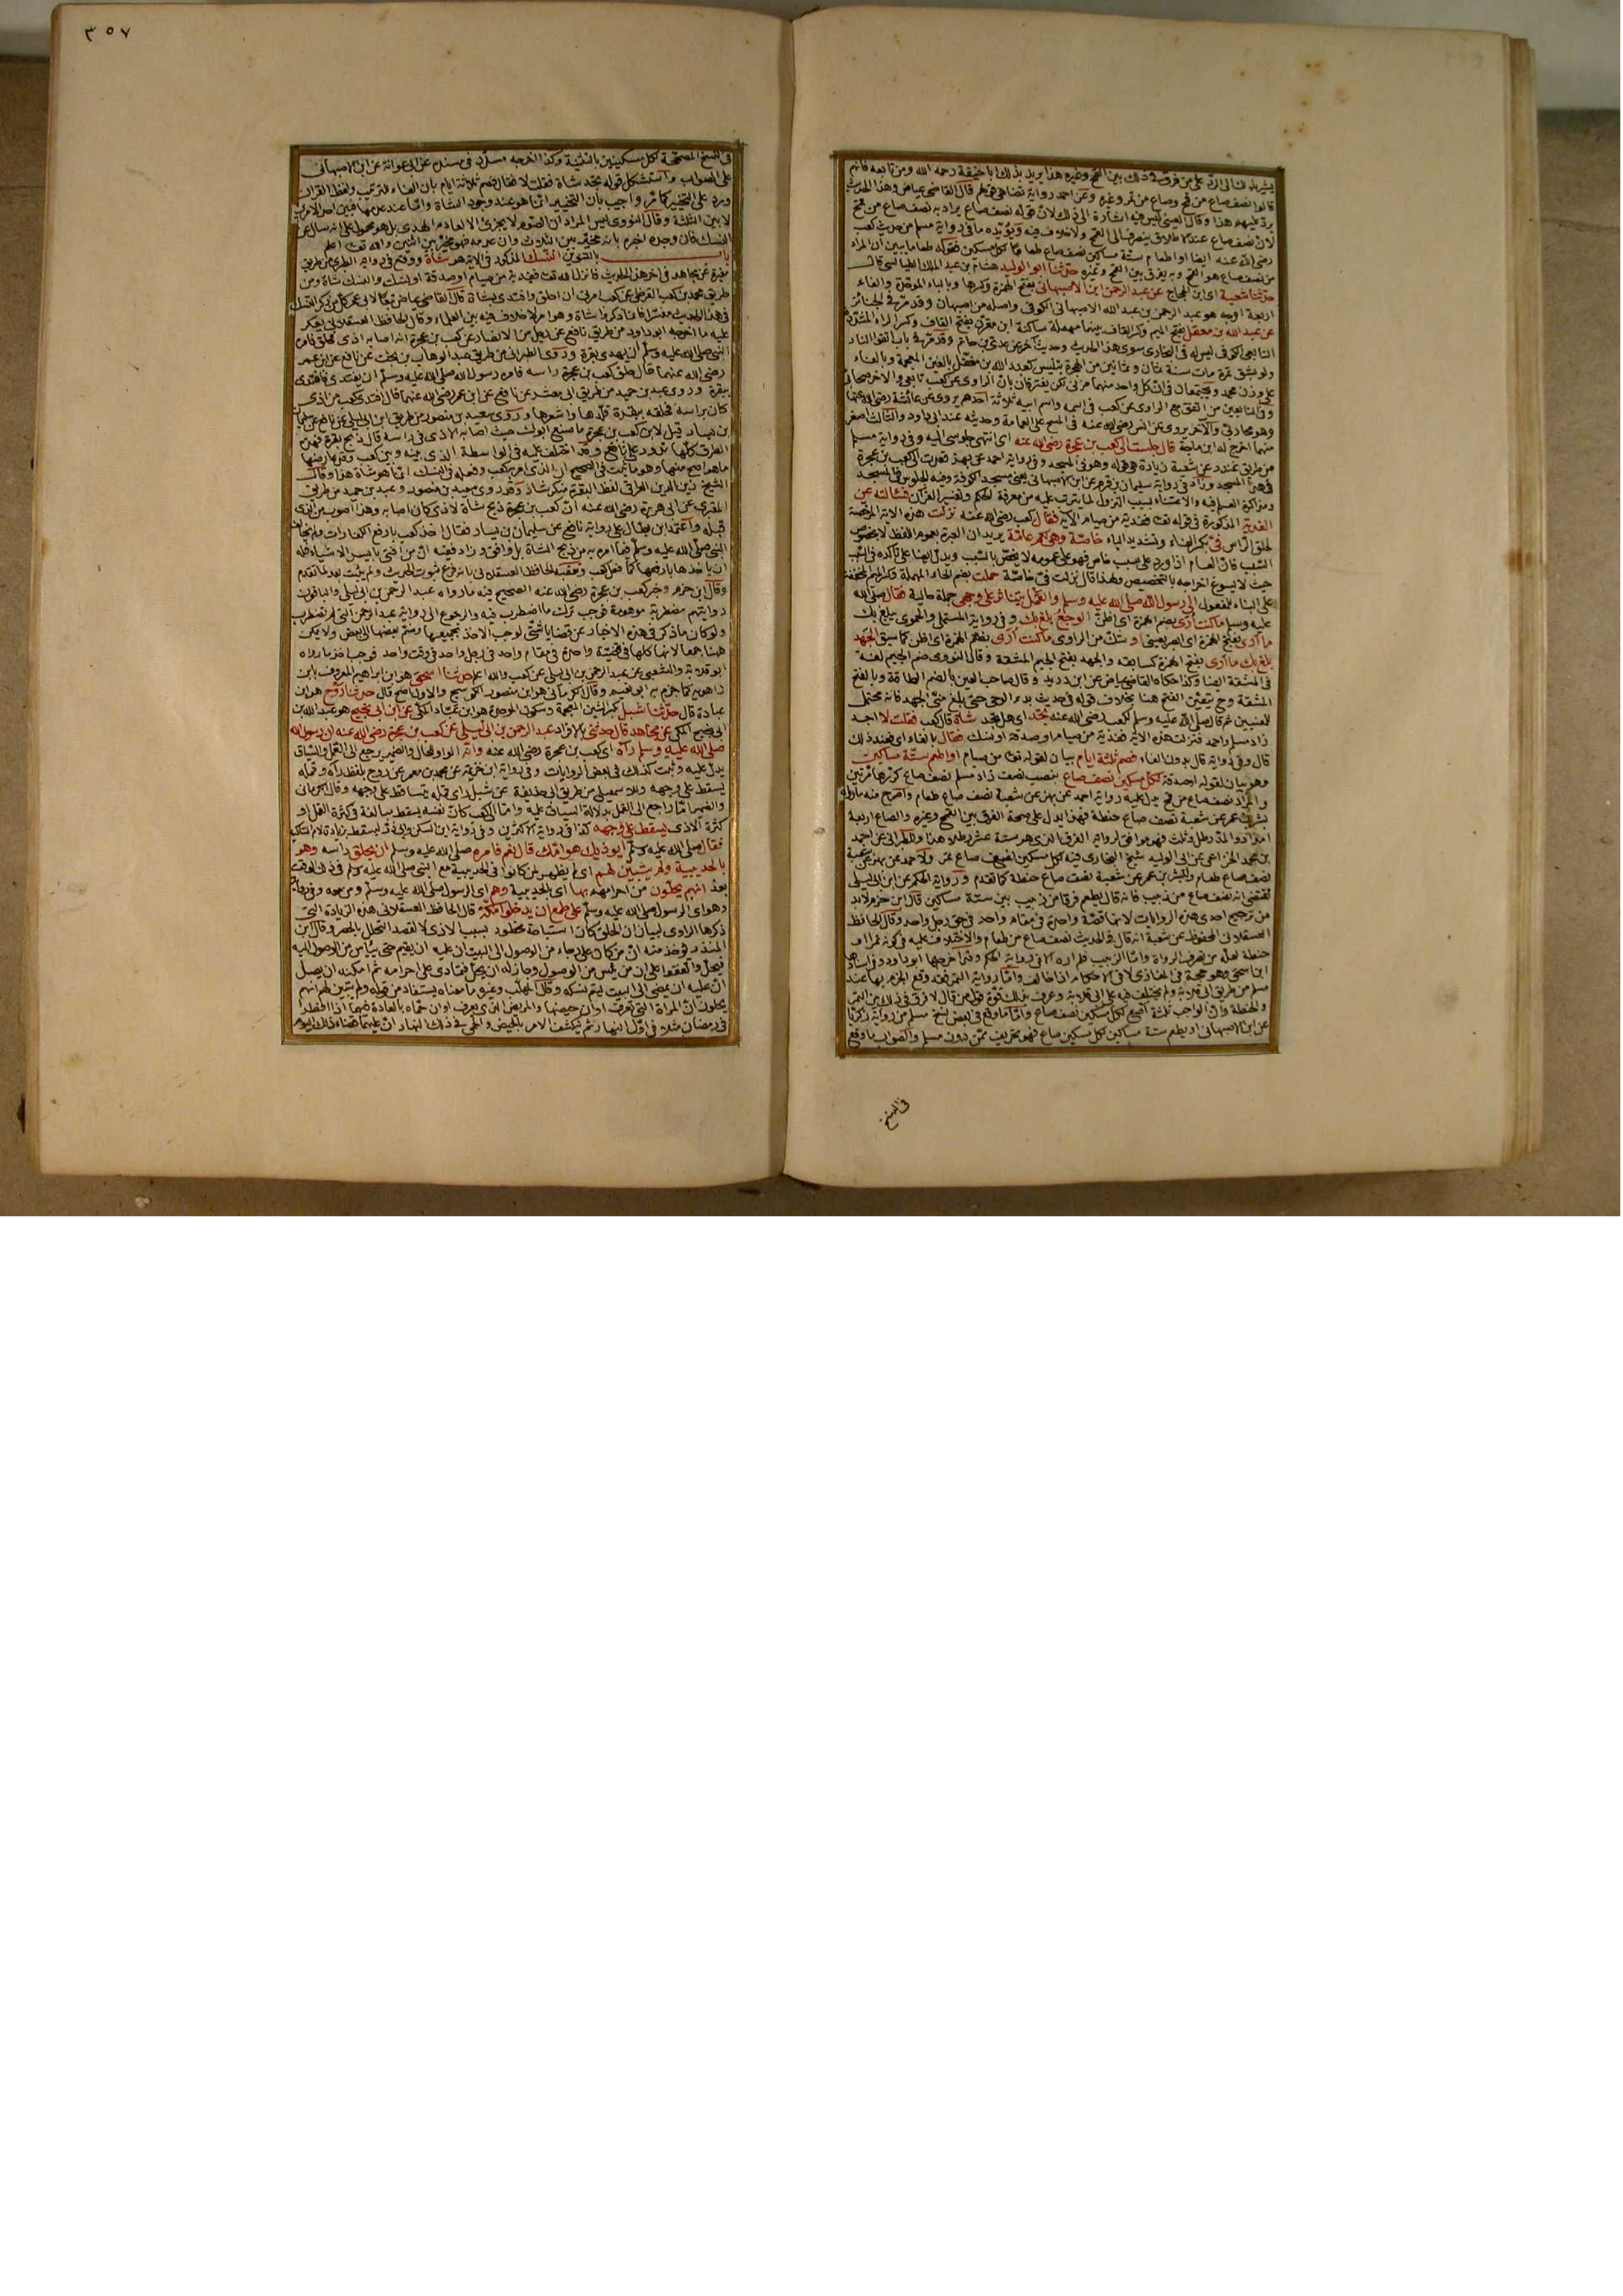 يشير بذلك الى الرد على من فرق في ذلك بين القمح وغيره هذا يريد بذلك ابا حنيفة رحمه الله ومن تابعه فانهم
قالوا نصف صاع من قمح وصاع من تمر وغيره وعن احمد رواية تضاهي قولهم قال القاضي عياض وهذا الحديث
يرد عليهم هذا وقال العيني ليس فيه اشارة الى ذلك لان قوله نصف صاع يراد به نصف صاع من قمح
لان نصف صاع عند الاطلاق ينصرف الى القمح ولا خلاف فيه ويؤيده ما في رواية مسلم من حديث كعب
رضي الله عنه ايضا او اطعام ستة مساكين نصف صاع طعاما لكل مسكين فقوله طعاما يبين ان المراد
من نصف صاع هو القمح وبه يفرق بين القمح وغيره حدثنا ابو الوليد هشام بن عبد الملك الطيالسي قال
حدثنا شعبة اي ابن الحجاج عن عبد الرحمن ابن الاصبهاني بفتح الهمزة وكسرها وبالباء الموحدة والفاء
اربعة اوجه هو عبد الرحمن بن عبد الله الاصبهاني الكوفي واصله من اصبهان وقد مر في الجنائز
عن عبد الله بن معقل بفتح الميم وكسر القاف بينهما مهملة ساكنة ابن مقرن بفتح القاف وكسر الراء المشددة
التابعي الكوفي ليس له في البخاري سوى هذا الحديث وحديث آخر عن عدي بن حاتم وقد مر في باب اتقوا النار
ولو بشق تمرة مات سنة ثمان وثمانين من الهجرة يلتبس بعبد الله بن مغفل بالغين المعجمة وبالفاء
على وزن محمد ويجتمعان في ان كل واحد منهما مزني لكن يفترقان بان الراوي عن كعب تابعي والآخر صحابي
وفي التابعين من اتفق مع الراوي عن كعب في اسمه واسم ابيه ثلاثة احدهم يروي عن عائشة رضي الله عنها
وهو محاربي والآخر يروي عن انس رضي الله عنه في المسح على العمامة وحديثه عند ابي داود والثالث اصغر
منهما اخرج له ابن ماجة قال جلست الى كعب بن عجرة رضي الله عنه اي انتهى جلوسي اليه وفي رواية مسلم
من طريق غندر عن شعبة زيادة هي قوله وهو في المسجد وفي رواية احمد عن بهز قعدت الى كعب بن عجرة
في هذا المسجد وزاد في رواية سليمان بن قرم عن ابن الاصبهاني يعني مسجد الكوفة وفيه الجلوس في المسجد
ومذاكرة العلم فيه والاعتناء بسبب النزول لما يترتب عليه من معرفة الحكم وتفسير القرآن فسألته عن
الفدية المذكورة في قوله تعالى ففدية من صيام الآية فقال كعب رضي الله عنه نزلت هذه الآية المرخصة
لحلق الراس في بكسر الفاء وتشديد الياء خاصة وهي لكم عامة يريد ان العبرة بعموم اللفظ لا بخصوص
السبب فان العام اذا ورد على سبب خاص فهو على عمومه لا يختص بالسبب ويدل ايضا على تأكده في السبب
حيث لا يسوغ اخراجه بالتخصيص ولهذا قال نزلت في خاصة حملت بضم الحاء المهملة وكسر الميم المخففة
على البناء للمفعول الى رسول الله صلى الله عليه وسلم والقمل يتناثر على وجهي جملة حالية فقال صلى الله
عليه وسلم ما كنت أرى بضم الهمزة اي اظن الوجع بلغ بك وفي رواية المستملي والحموي يبلغ بك
ما أرى بفتح الهمزة اي ابصر بعيني او شك من الراوي ما كنت أرى بضم الهمزة اي اظن كما سبق الجهد
بلغ بك ما أرى بفتح الهمزة كسابقه والجهد بفتح الجيم المشقة وقال النووي ضم الجيم لغة
في المشقة ايضا وكذا حكاه القاضي عياض عن ابن دريد وقال صاحب العين بالضم الطاقة وبالفتح
المشقة وح يتعين الفتح هنا بخلاف قوله في حديث بدء الوحي حتى بلغ مني الجهد فانه محتمل
للمعنيين ثم قال صلى الله عليه وسلم لكعب رضي الله عنه تجد اي هل تجد شاة قال كعب فقلت لا اجد
زاد مسلم واحمد فنزلت هذه الآية ففدية من صيام او صدقة او نسك فقال بالفاء اي فعند ذلك
قال وفي رواية قال بدون الفاء فصم ثلثة ايام بيان لقوله تعالى من صيام او اطعم ستة مساكين
وهو بيان لقوله او صدقة لكل مسكين نصف صاع بنصب نصف زاد مسلم نصف صاع كررها مرتين
والمراد نصف صاع من قمح يدل عليه رواية احمد عن بهز عن شعبة نصف صاع طعام واصرح منه ما رواه
بشر بن عمر عن شعبة نصف صاع حنطة فهذا يدل على صحة الفرق بين القمح وغيره والصاع اربعة
امداد والمد رطل وثلث فهو موافق لرواية الفرق الذي هو ستة عشر رطلا هذا وللطبراني عن احمد
بن محمد الخزاعي عن ابي الوليد شيخ البخاري فيه لكل مسكين نصف صاع تمر ولاحمد عن بهز عن شعبة
نصف صاع طعام ولبشر بن عمر عن شعبة نصف صاع حنطة كما تقدم ورواية الحكم عن ابن ابي ليلى
تقتضي انه نصف صاع من زبيب فانه قال يطعم فرقا من زبيب بين ستة مساكين قال ابن حزم لا بد
من ترجيح احدى هذه الروايات لانها قصة واحدة في مقام واحد في حق رجل واحد وقال الحافظ
العسقلاني المحفوظ عن شعبة انه قال في الحديث نصف صاع من طعام والاختلاف عليه في كونه تمرا او
حنطة لعله من تصرف الرواة واما الزبيب فلم اره الا في رواية الحكم وقد اخرجها ابو داود وفي اسنادها
ابن اسحق وهو حجة في المغازي لا في الاحكام اذا خالف واما رواية التمر فقد وقع الجزم بها عند
مسلم من طريق ابي قلابة ولم يختلف فيه على ابي قلابة وعرف بذلك قوة قول من قال لا فرق في ذلك بين التمر
والحنطة وان الواجب ثلثة آصع لكل مسكين نصف صاع واما ما وقع في بعض نسخ مسلم من رواية زكريا
عن ابن الاصبهاني او يطعم ستة مساكين لكل مسكين صاع فهو تحريف ممن دون مسلم والصواب ما وقع
في النسخ
٣٥٧
في النسخ المصححة لكل مسكينين بالتثنية وكذا اخرجه مسدد في مسنده عن ابي عوانة عن ابن الاصبهاني
على الصواب واستشكل قوله تجد شاة فقلت لا فقال فصم ثلاثة ايام بان الفاء للترتيب ولفظ القرآن
ورد على التخيير كما مر واجيب بأن التخيير انما هو عند وجود الشاة واما عند عدمها فبين احد الامرين
لا بين الثلثة وقال النووي ليس المراد ان الصوم لا يجزئ الا لعادم الهدي بل هو محمول على انه سأل عن
النسك فان وجده اخبره بانه مخير بين الثلاث وان عدمه فهو مخير بين اثنين والله تعالى اعلم
باب بالتنوين النسك المذكور في الآية هو شاة ووقع في رواية الطبري من طريق
مغيرة عن مجاهد في آخر هذا الحديث فانزل الله تعالى ففدية من صيام او صدقة او نسك والنسك شاة ومن
طريق محمد بن كعب القرظي عن كعب امرني ان احلق وافتدي بشاة قال القاضي عياض تبعا لابي عمر كل من ذكر النسك
في هذا الحديث مفسرا فانما ذكروا شاة وهو امر لا خلاف فيه بين العلماء وقال الحافظ العسقلاني يعكر
عليه ما اخرجه ابو داود من طريق نافع عن رجل من الانصار عن كعب بن عجرة انه اصابه اذى فحلق فأمره
النبي صلى الله عليه وسلم ان يهدي بقرة وروى الطبراني من طريق عبد الوهاب بن بخت عن نافع عن ابن عمر
رضي الله عنهما قال حلق كعب بن عجرة راسه فامره رسول الله صلى الله عليه وسلم ان يفتدي فافتدى
ببقرة وروى عبد بن حميد من طريق ابي معشر عن نافع عن ابن عمر رضي الله عنهما قال افتدى كعب من اذى
كان براسه فحلقه ببقرة قلدها واشعرها وروى سعيد بن منصور من طريق ابن ابي ليلى عن نافع عن سليمان
بن يسار قيل لابن كعب بن عجرة ما صنع ابوك حيث اصابه الاذى في راسه قال ذبح بقرة فهذه
الطرق كلها تدور على نافع وقد اختلف عليه في الواسطة الذي بينه وبين كعب وقد عارضها
ما هو اصح منها وهو ما ثبت في الصحيح ان الذي امر به كعب وفعله في النسك انما هو شاة هذا وقال
الشيخ زين الدين العراقي لفظ البقرة منكر شاذ وقد روى سعيد بن منصور وعبد بن حميد من طريق
المقبري عن ابي هريرة رضي الله عنه ان كعب بن عجرة ذبح شاة لاذى كان اصابه وهذا اصوب من الذي
قبله واعتمد ابن بطال على رواية نافع عن سليمان بن يسار فقال اخذ كعب بارفع الكفارات ولم يخالف
النبي صلى الله عليه وسلم فيما امره به من ذبح الشاة بل وافق وزاد ففيه ان من افتى بايسر الاشياء فله
ان ياخذ ها بارفعها كما فعل كعب وتعقبه الحافظ العسقلاني بانه فرع ثبوت الحديث ولم يثبت بعد لما تقدم
وقال ابن حزم وخبر كعب بن عجرة رضي الله عنه الصحيح فيه ما رواه عبد الرحمن بن ابي ليلى والباقون
روايتهم مضطربة موهومة فوجب ترك ما اضطرب فيه والرجوع الى رواية عبد الرحمن التي لم تضطرب
ولو كان ما ذكر في هذه الاخبار عن قضايا شتى لوجب الاخذ بجميعها وضم بعضها الى بعض ولا يمكن
ههنا جمعها لانها كلها في قضية واحدة في مقام واحد في رجل واحد في وقت واحد فوجب اخذ ما رواه
ابو قلابة والشعبي عن عبد الرحمن بن ابي ليلى عن كعب والله اعلم حدثنا اسحق هو ابن ابراهيم المعروف بابن
راهويه كما جزم به ابو نعيم وقال الكرماني هو ابن منصور الكوسج والاول اصح قال حدثنا روح هو ابن
عبادة قال حدثنا شبل بكسر الشين المعجمة وسكون الموحدة هو ابن عباد المكي عن ابن ابي نجيح هو عبد الله بن
ابي نجيح المكي عن مجاهد قال حدثني بالافراد عبد الرحمن بن ابي ليلى عن كعب بن عجرة رضي الله عنه ان رسول الله
صلى الله عليه وسلم رآه اي كعب بن عجرة رضي الله عنه وانه الواو للحال والضمير يرجع الى القمل والسياق
يدل عليه وثبت كذلك في بعض الروايات وفي رواية ابن خزيمة عن محمد بن معمر عن روح بلفظ رآه وقمله
يسقط على وجهه وللاسمعيلي من طريق ابي حذيفة عن شبل راى قمله يتساقط على وجهه وقال الكرماني
والضمير اما راجع الى القمل بدلالة السياق عليه واما الى كعب كأن نفسه يسقط مبالغة في كثرة القمل او
كثرة الاذى يسقط على وجهه كذا في رواية الاكثرين وفي رواية ابن السكن وابي ذر ليسقط بزيادة لام التاكيد
فقال صلى الله عليه وسلم أيوذيك هوامك قال نعم فامره صلى الله عليه وسلم ان يحلق راسه وهو
بالحديبية ولم يتبين لهم اي لم يظهر لمن كانوا في الحديبية مع النبي صلى الله عليه وسلم في ذلك الوقت
بعد انهم يحلون من احرامهم بها اي بالحديبية وهم اي الرسول صلى الله عليه وسلم ومن معه وفي رواية
وهو اي الرسول صلى الله عليه وسلم على طمع ان يدخلوا مكة قال الحافظ العسقلاني هذه الزيادة التي
ذكرها الراوي لبيان ان الحلق كان استباحة محظور بسبب الاذى لا لقصد التحلل بالحصر وقال ابن
المنذر يؤخذ منه ان من كان على رجاء من الوصول الى البيت ان عليه ان يقيم حتى ييأس من الوصول اليه
فيحل واتفقوا على ان من يئس من الوصول وجاز له ان يحل فتمادى على احرامه ثم امكنه ان يصل
ان عليه ان يمضي الى البيت ليتم نسكه وقال المهلب وغيره ما معناه يستفاد من قوله ولم يتبين لهم انهم
يحلون ان المرأة التي تعرف اوان حيضها والمريض الذي يعرف اوان حماه بالعادة فيهما اذا افطرا
في رمضان مثلا في اول النهار ثم ينكشف الامر بالحيض والحمى في ذلك النهار ان عليهما قضاء ذلك اليوم